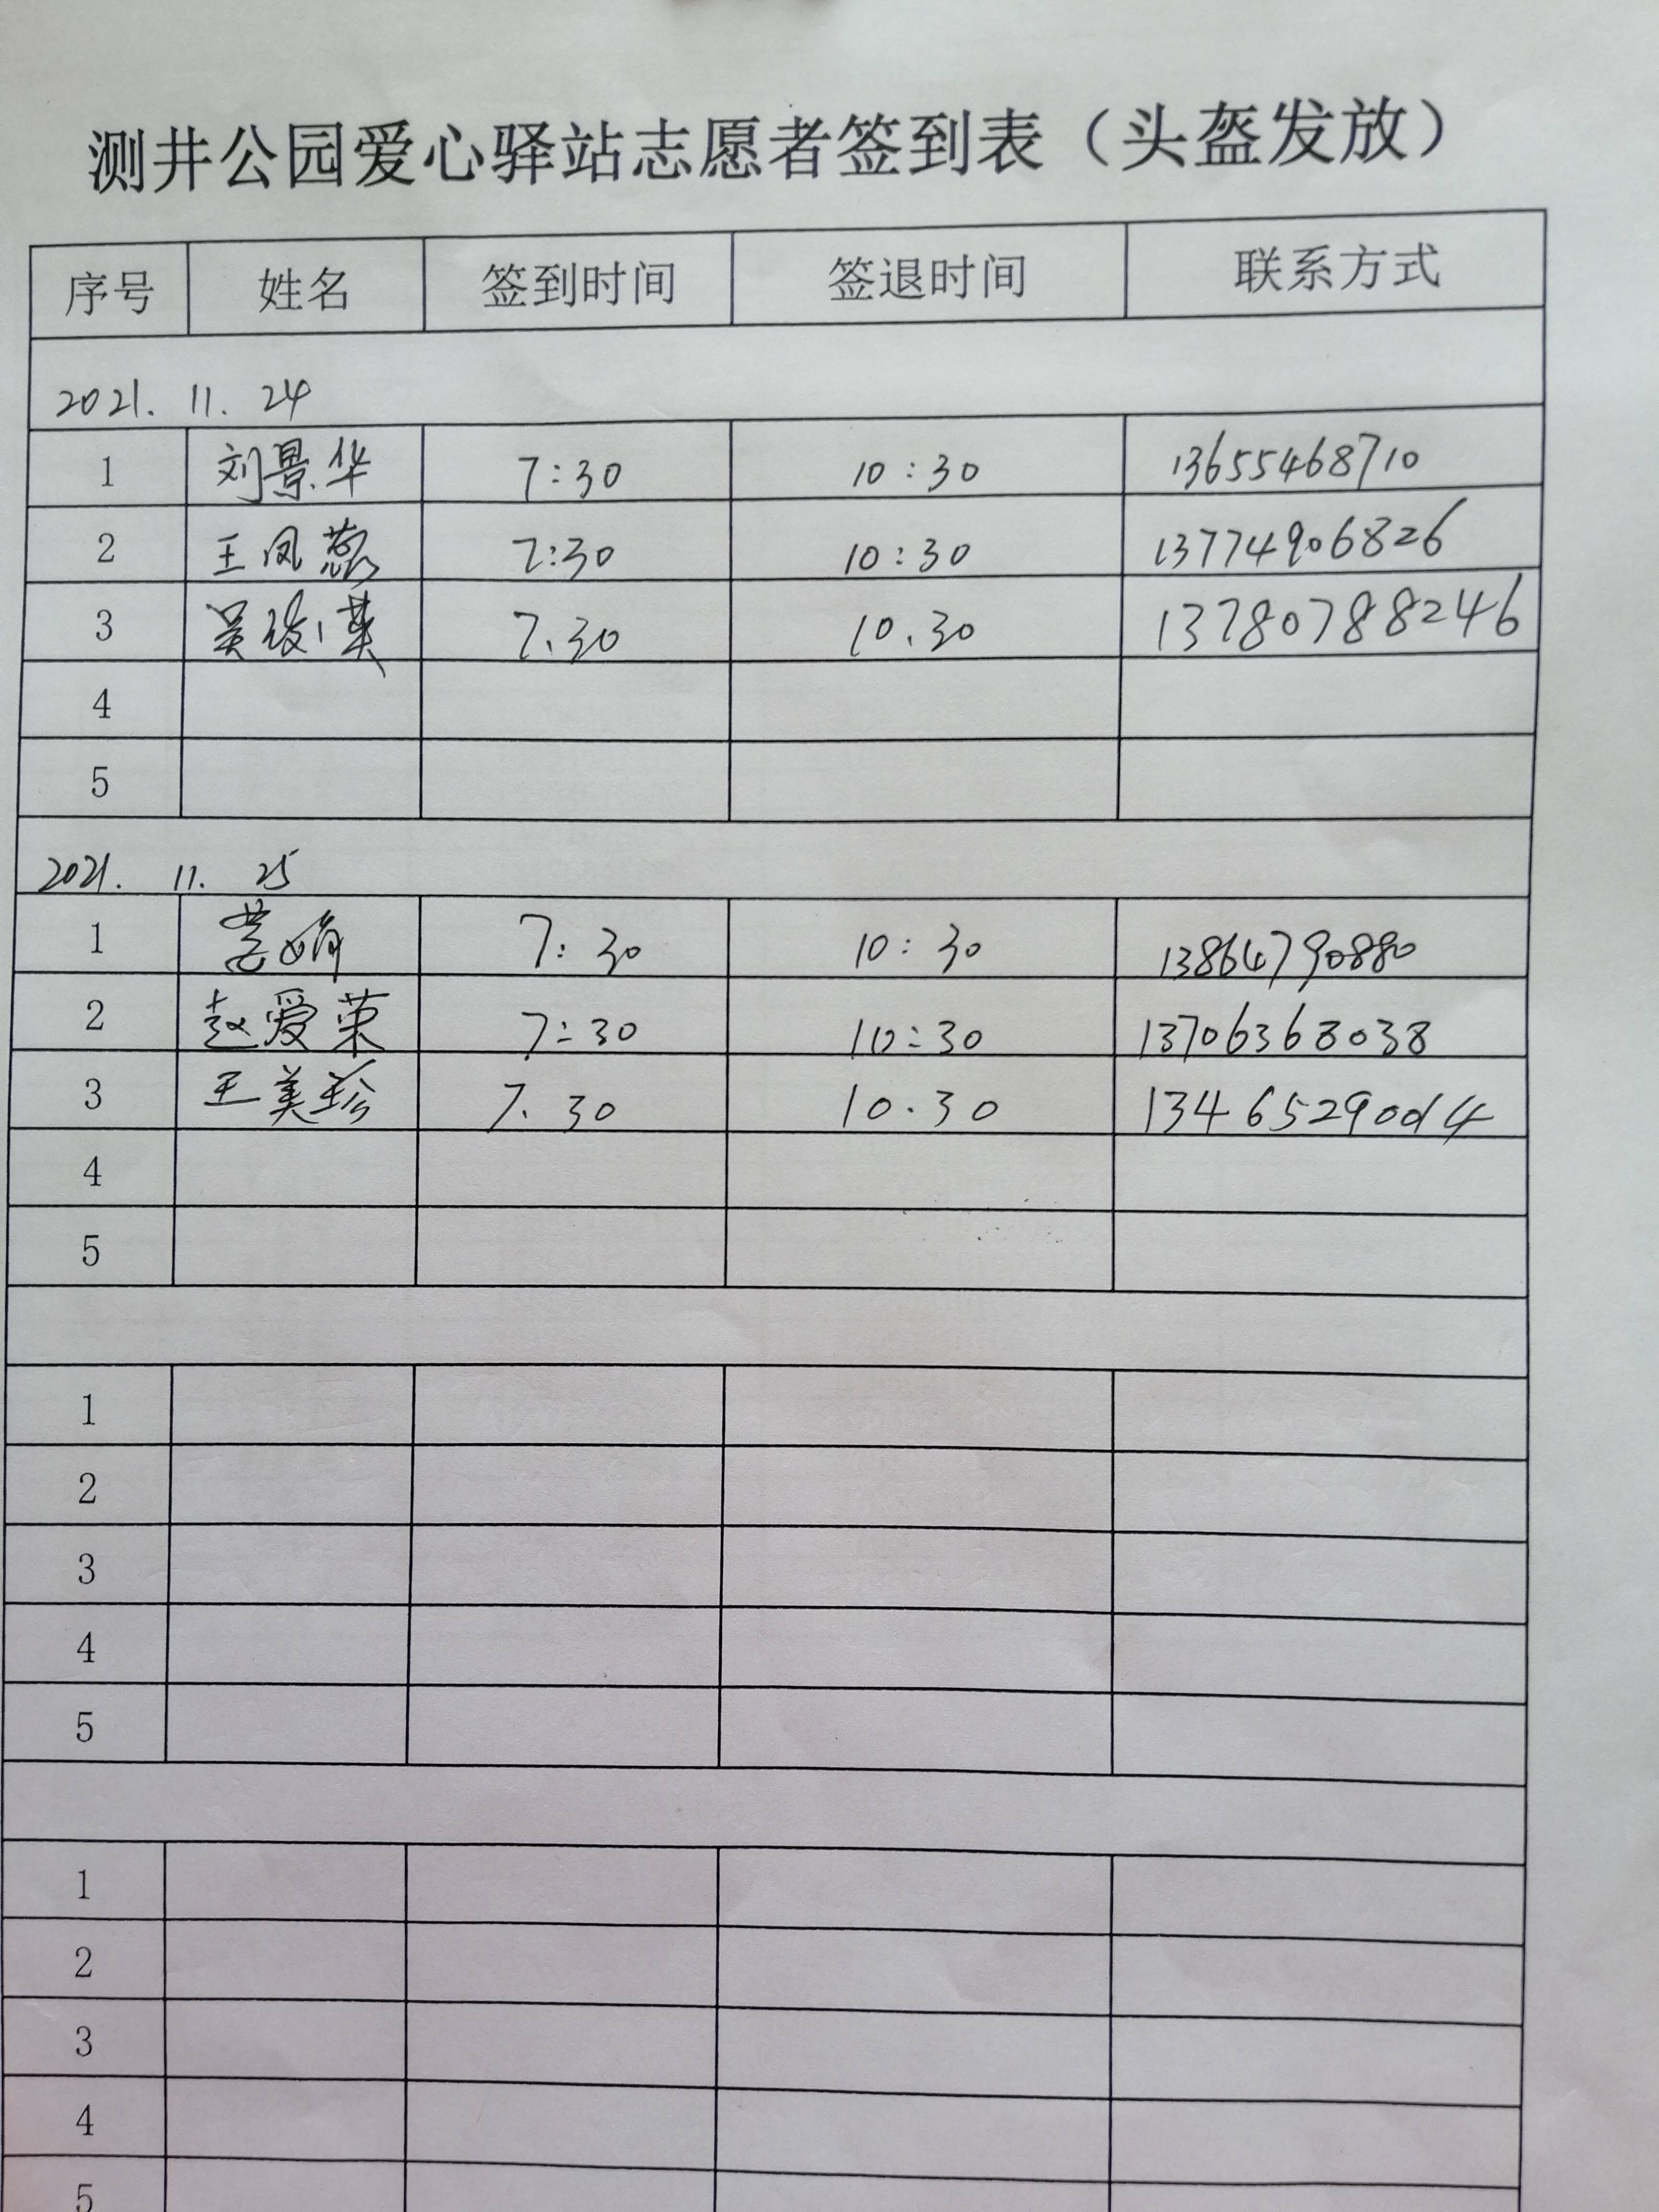 测井公园爱心驿站志愿者签到表（头盔发放）
序号 姓名 签到时间 签退时间 联系方式
2021. 11. 24
1 刘景华 7:30 10:30 13655468710
2 王凤蕊 7:30 10:30 13774906826
3 吴 英 7.30 10.30 13780788246
4
5
2021. 11. 25
1 娟 7:30 10:30 13864790880
2 赵爱荣 7:30 10:30 13706368038
3 王美珍 7.30 10.30 134652900
4
5
1
2
3
4
5
1
2
3
4
5